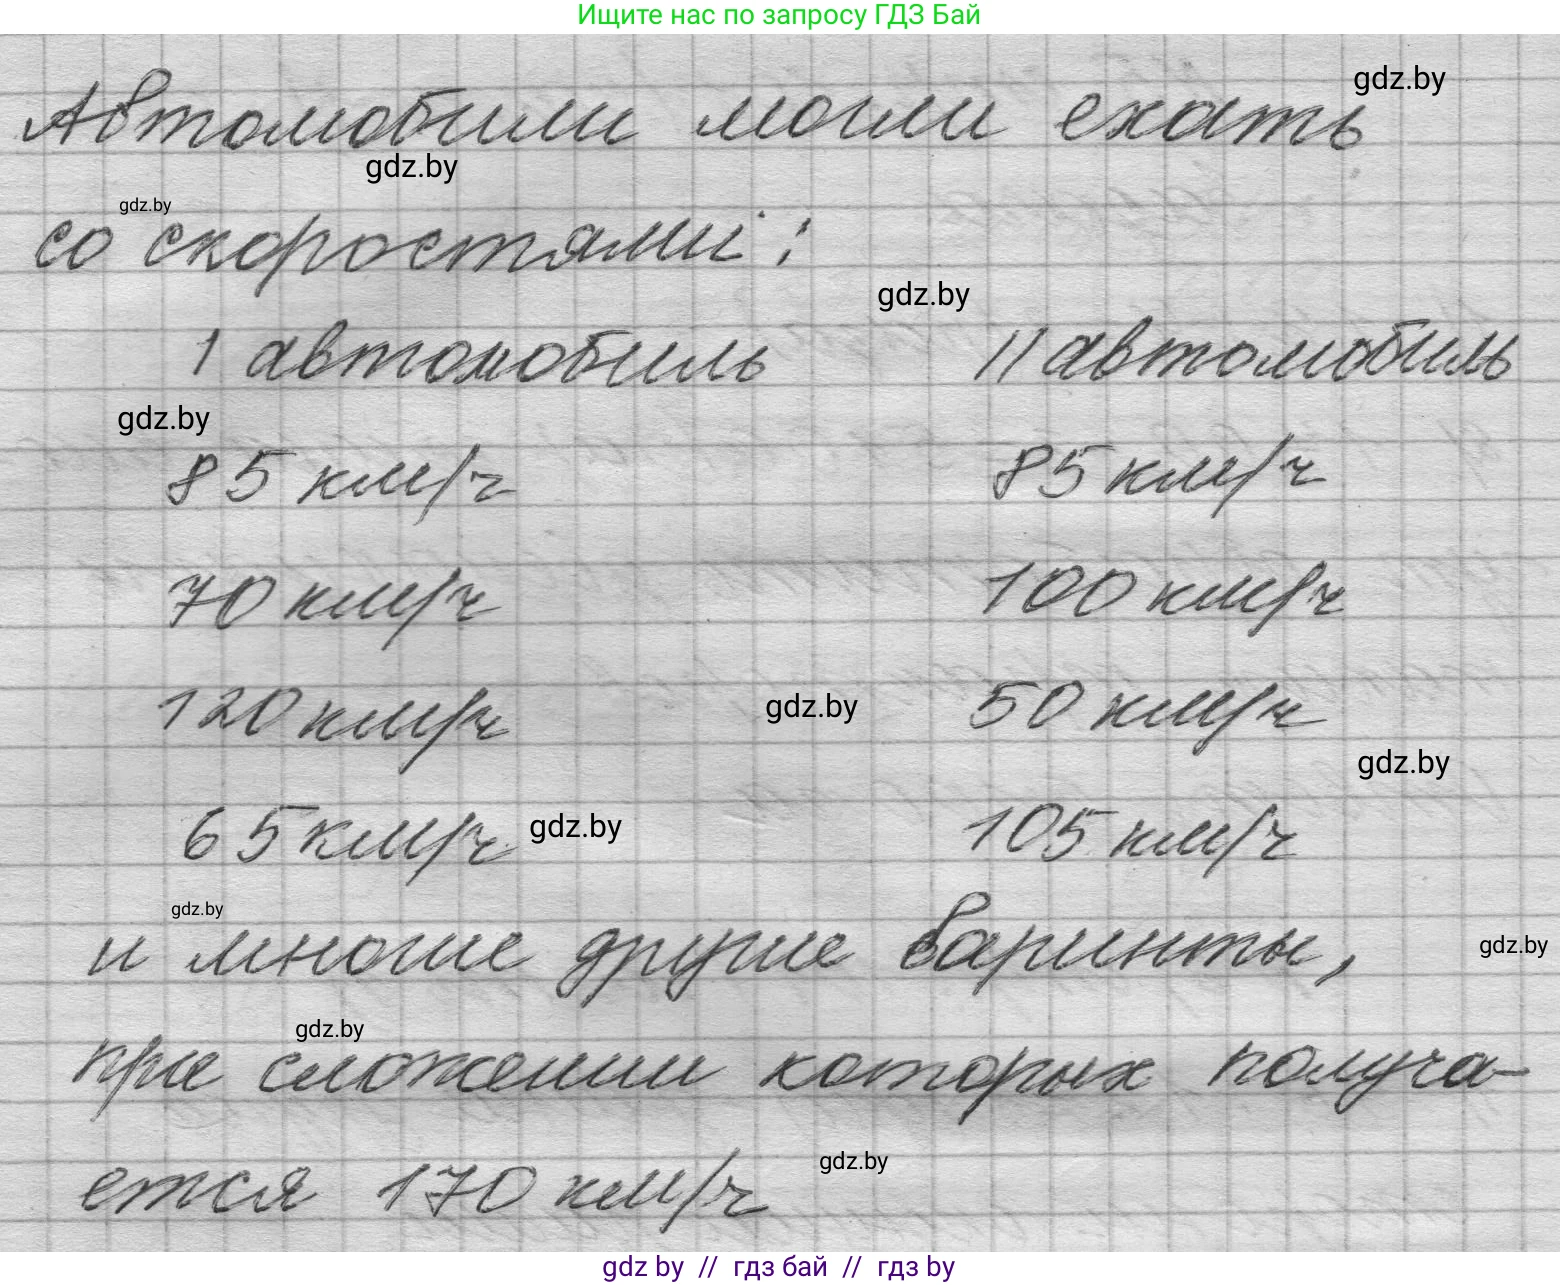 Ищите нас по запросу ГДЗ Бай
gdz.by
Автомобили могли ехать
gdz.by
gdz.by
со скоростями:
gdz.by
1 автомобиль II автомобиль
gdz.by
85 км/ч 85 км/ч
70 км/ч 100 км/ч
120 км/ч gdz.by 50 км/ч
gdz.by
65 км/ч gdz.by 105 км/ч
gdz.by
и многие другие вариинты, gdz.by
gdz.by
при сложении которых получа-
ется 170 км/ч gdz.by
gdz by // гдз бай // гдз by